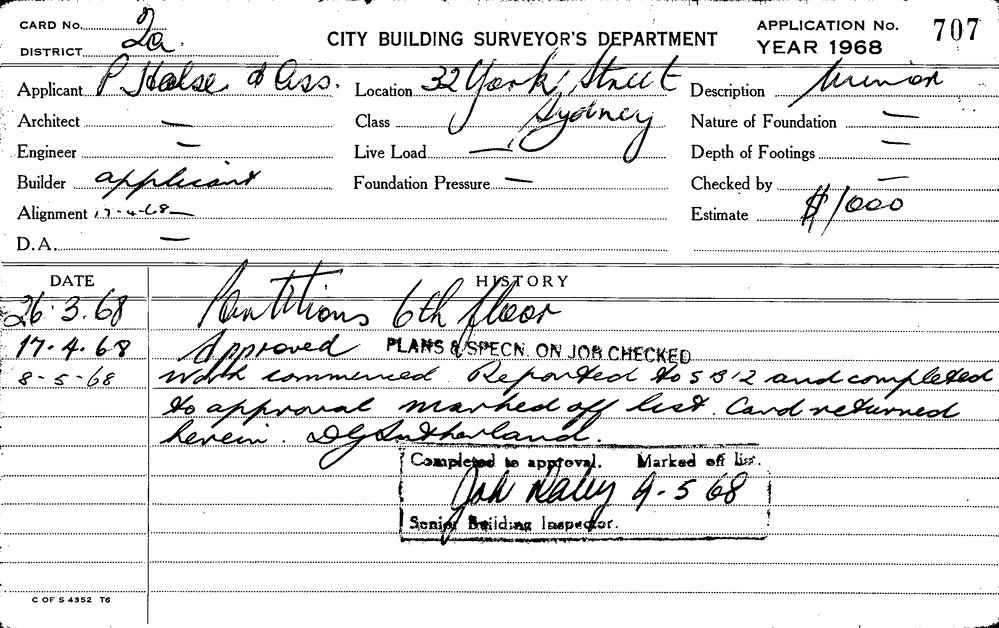 CARD No. 2a
DISTRICT
CITY BUILDING SURVEYOR'S DEPARTMENT
APPLICATION No. 707
YEAR 1968
Applicant P Halse & Ass. Location 32 York Street Description Minor
Architect — Class Sydney Nature of Foundation —
Engineer — Live Load — Depth of Footings —
Builder applicant Foundation Pressure — Checked by —
Alignment 17-4-68— Estimate $1000
D.A. —
DATE HISTORY
26.3.68 Partitions 6th floor
17.4.68 Approved PLANS & SPECN. ON JOB CHECKED
8-5-68 Work commenced Reported to S B 12 and completed
to approval marked off list. Card returned
herein. D G Sutherland.
Completed to approval. Marked off list.
Daley 9-5 68
Senior Building Inspector.
C OF S 4352 T6